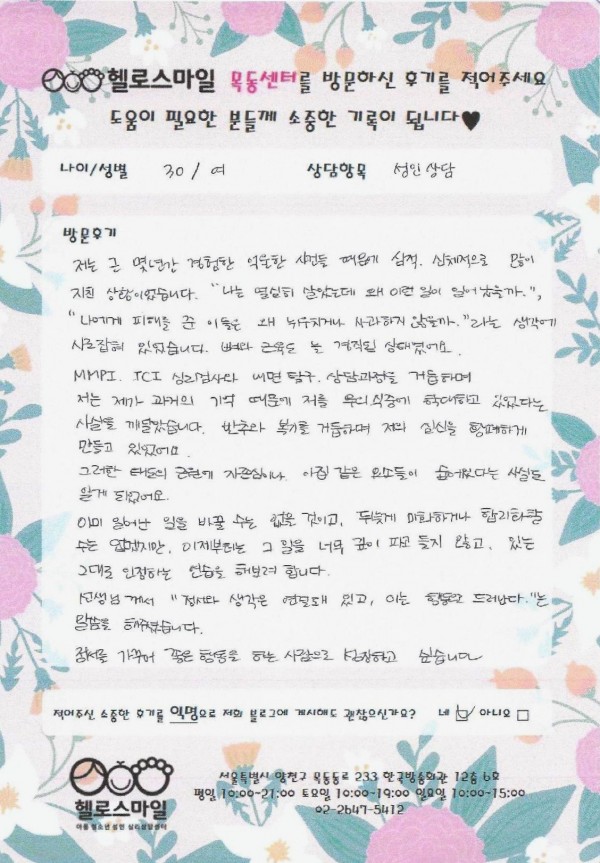 헬로스마일 목동센터를 방문하신 후기를 적어주세요
도움이 필요한 분들께 소중한 기록이 됩니다♥
나이/성별 30 / 여 상담항목 성인상담
방문후기
저는 근 몇년간 경험한 억울한 사건들 때문에 심적, 신체적으로 많이
지친 상황이었습니다. "나는 열심히 살았는데 왜 이런 일이 일어났을까.",
"나에게 피해를 준 이들은 왜 뉘우치거나 사과하지 않을까."라는 생각에
사로잡혀 있었습니다. 뼈와 근육도 늘 경직된 상태였어요.
MMPI, TCI 심리검사와 내면 탐구, 상담과정을 거듭하며
저는 제가 과거의 기억 때문에 저를 무의식중에 학대하고 있었다는
사실을 깨달았습니다. 반추와 복기를 거듭하며 저의 심신을 황폐하게
만들고 있었어요.
그러한 태도의 근원에 자존심이나 아집 같은 요소들이 숨어있다는 사실도
알게 되었어요.
이미 일어난 일을 바꿀 수는 없을 것이고, 뒤늦게 미화하거나 합리화할
수는 없겠지만, 이제부터는 그 일을 너무 깊이 파고 들지 않고, 있는
그대로 인정하는 연습을 해보려 합니다.
선생님께서 "정서와 생각은 연결돼 있고, 이는 행동으로 드러난다."는
말씀을 해주셨습니다.
정서를 가꾸어 좋은 행동을 하는 사람으로 성장하고 싶습니다
적어주신 소중한 후기를 익명으로 저희 블로그에 게시해도 괜찮으신가요? 네 ☑ / 아니요 □
헬로스마일
아동 청소년 성인 심리상담센터
서울특별시 양천구 목동동로 233 한국방송회관 12층 6호
평일 10:00-21:00 토요일 10:00-19:00 일요일 10:00-15:00
02-2647-5412